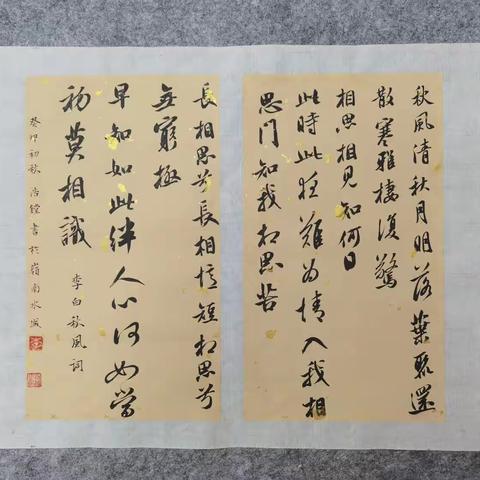 秋風清秋月明落葉聚還
散寒雅棲復驚
相思相見知何日
此時此夜難為情入我相
思門知我相思苦
長相思兮長相憶短相思兮
無窮極
早知如此絆人心何如當
初莫相識
李白秋風詞
癸卯初秋浩鏜書於嶺南水城